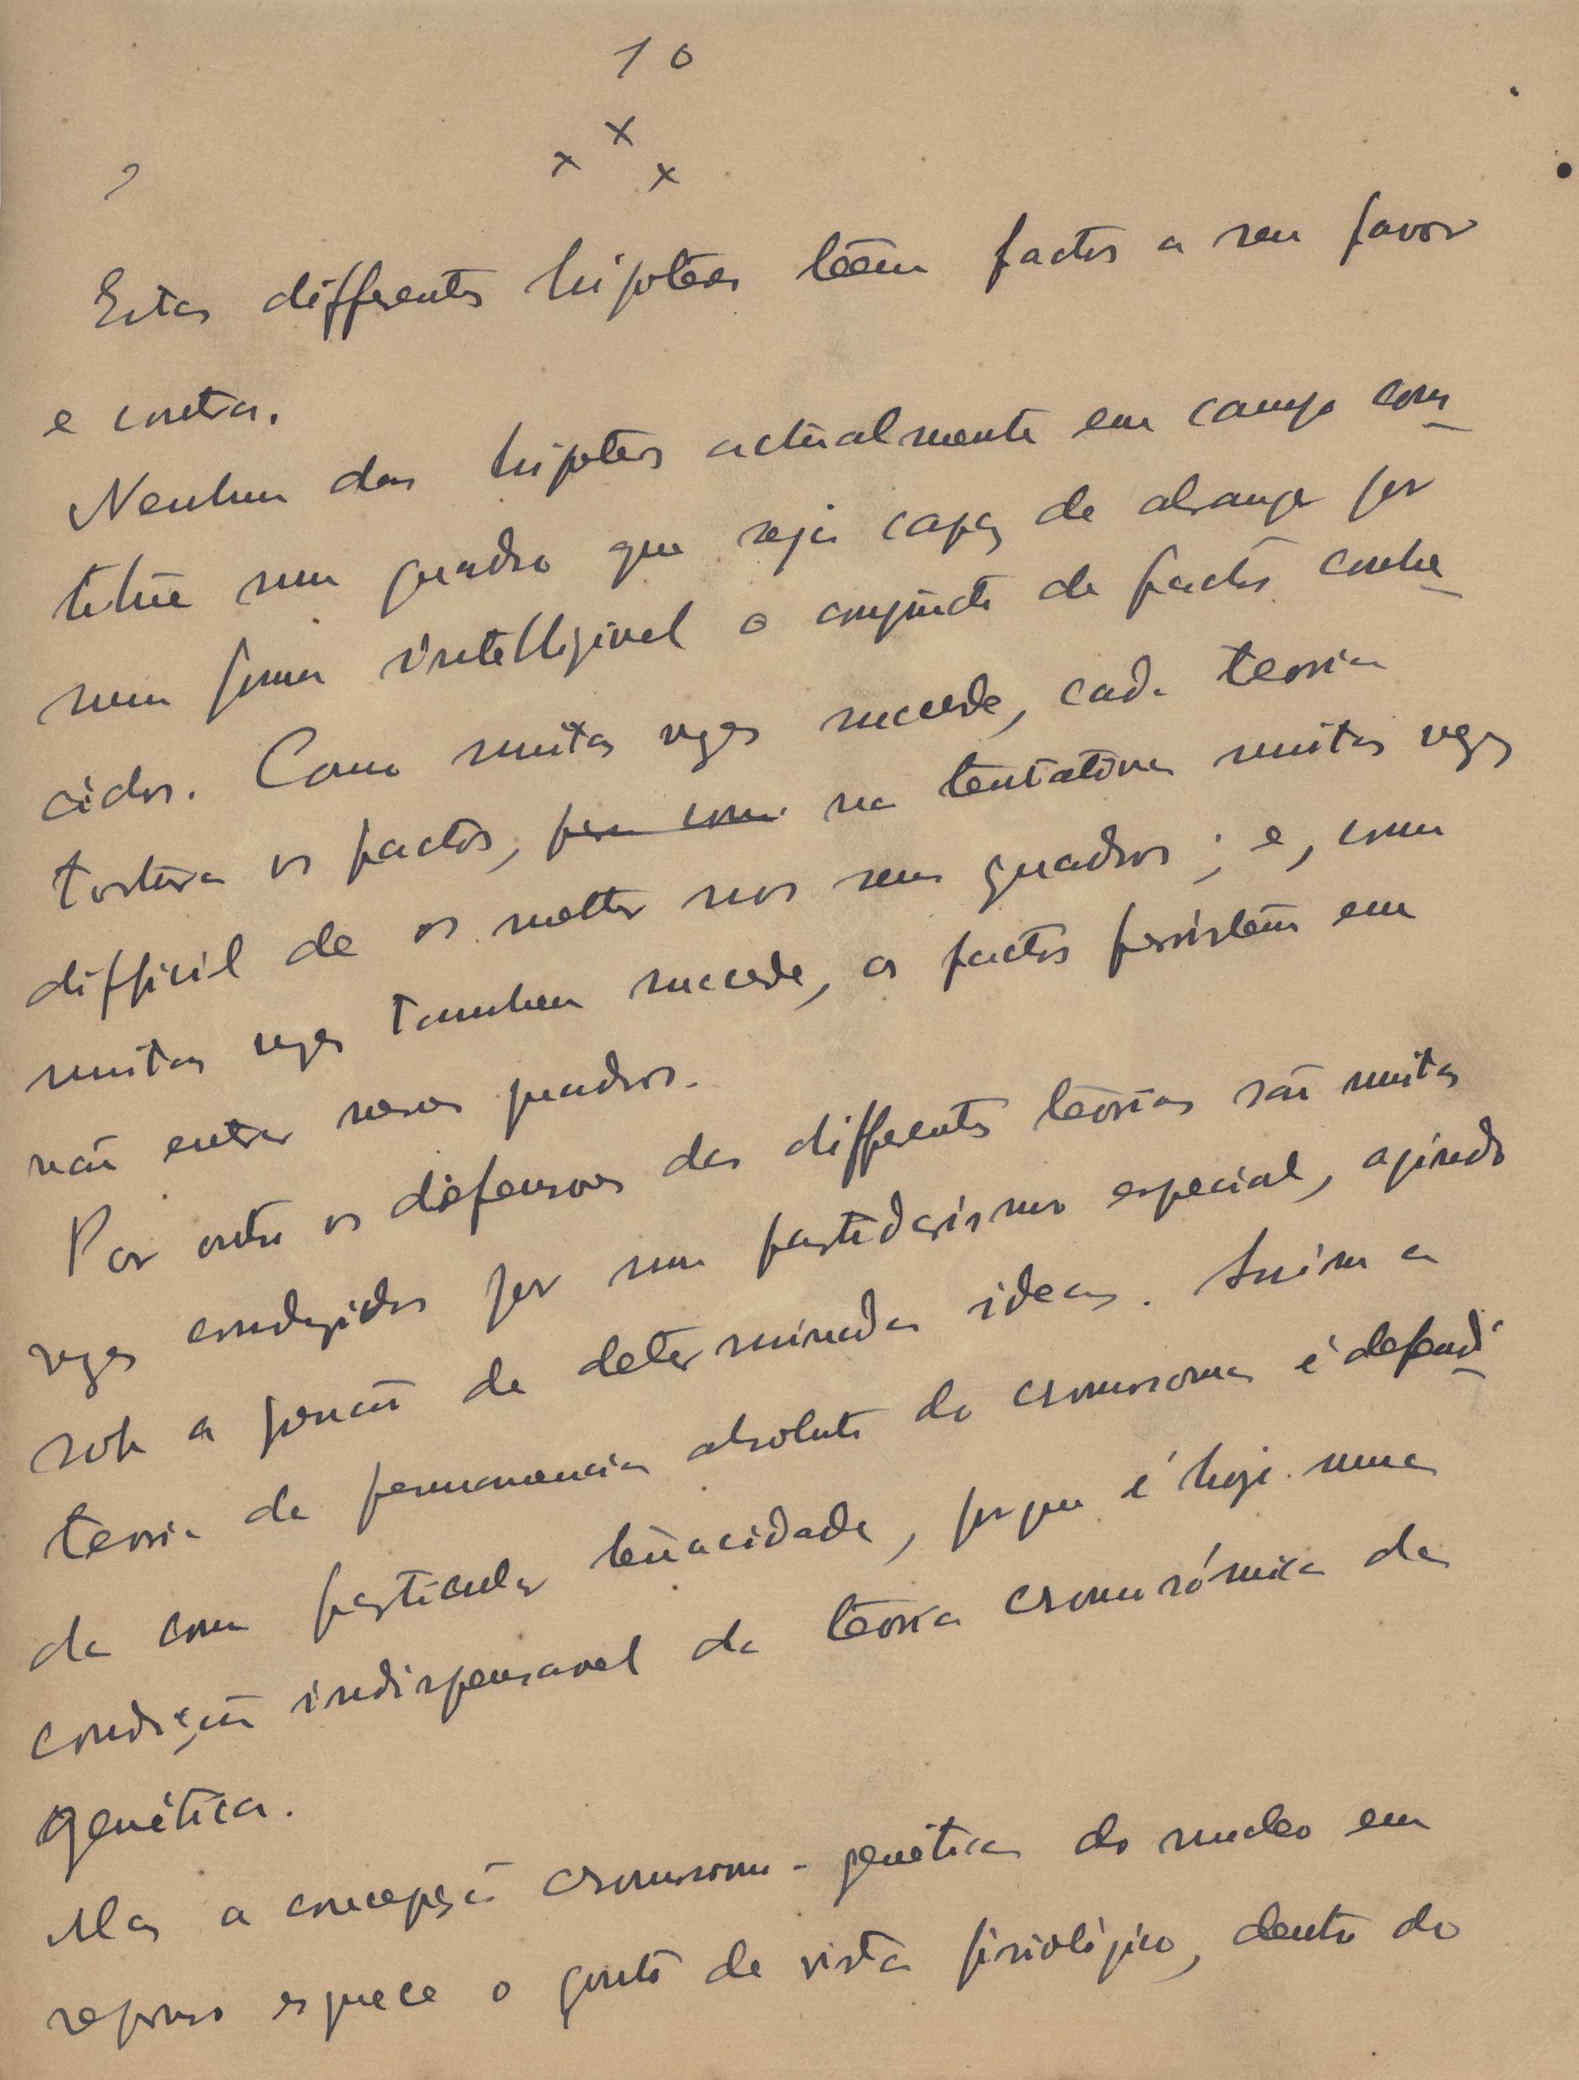 10
x x x
Estas differentes hipoteses tẽem factos a seu favor
e contra.
Nenhum das hipoteses actualmente em campo cons-
titue um quadro que seja capaz de abranger por
uma forma intelligivel o conjuncto de factos conhe-
cidos. Como muitas vezes succede, cada teoria
tortura os factos, na tentativa muitas vezes
difficil de os metter nos seus quadros; e, como
muitas vezes tambem succede, os factos persistem em
não entrar nesses quadros.
Por outro os defensores das differentes teorias são muitas
vezes conduzidos por um partidarismo especial, agindo
sob a pressão de determinadas ideas. Assim a
teoria da permanencia absoluta do cromosoma é defendi-
da com particular tenacidade, porque é hoje uma
condição indispensavel da teoria cromosómica da
genética.
Mas a concepção cromosomo-genetica do nucleo em
repouso esquece o ponto de vista fisiológico, dentro do